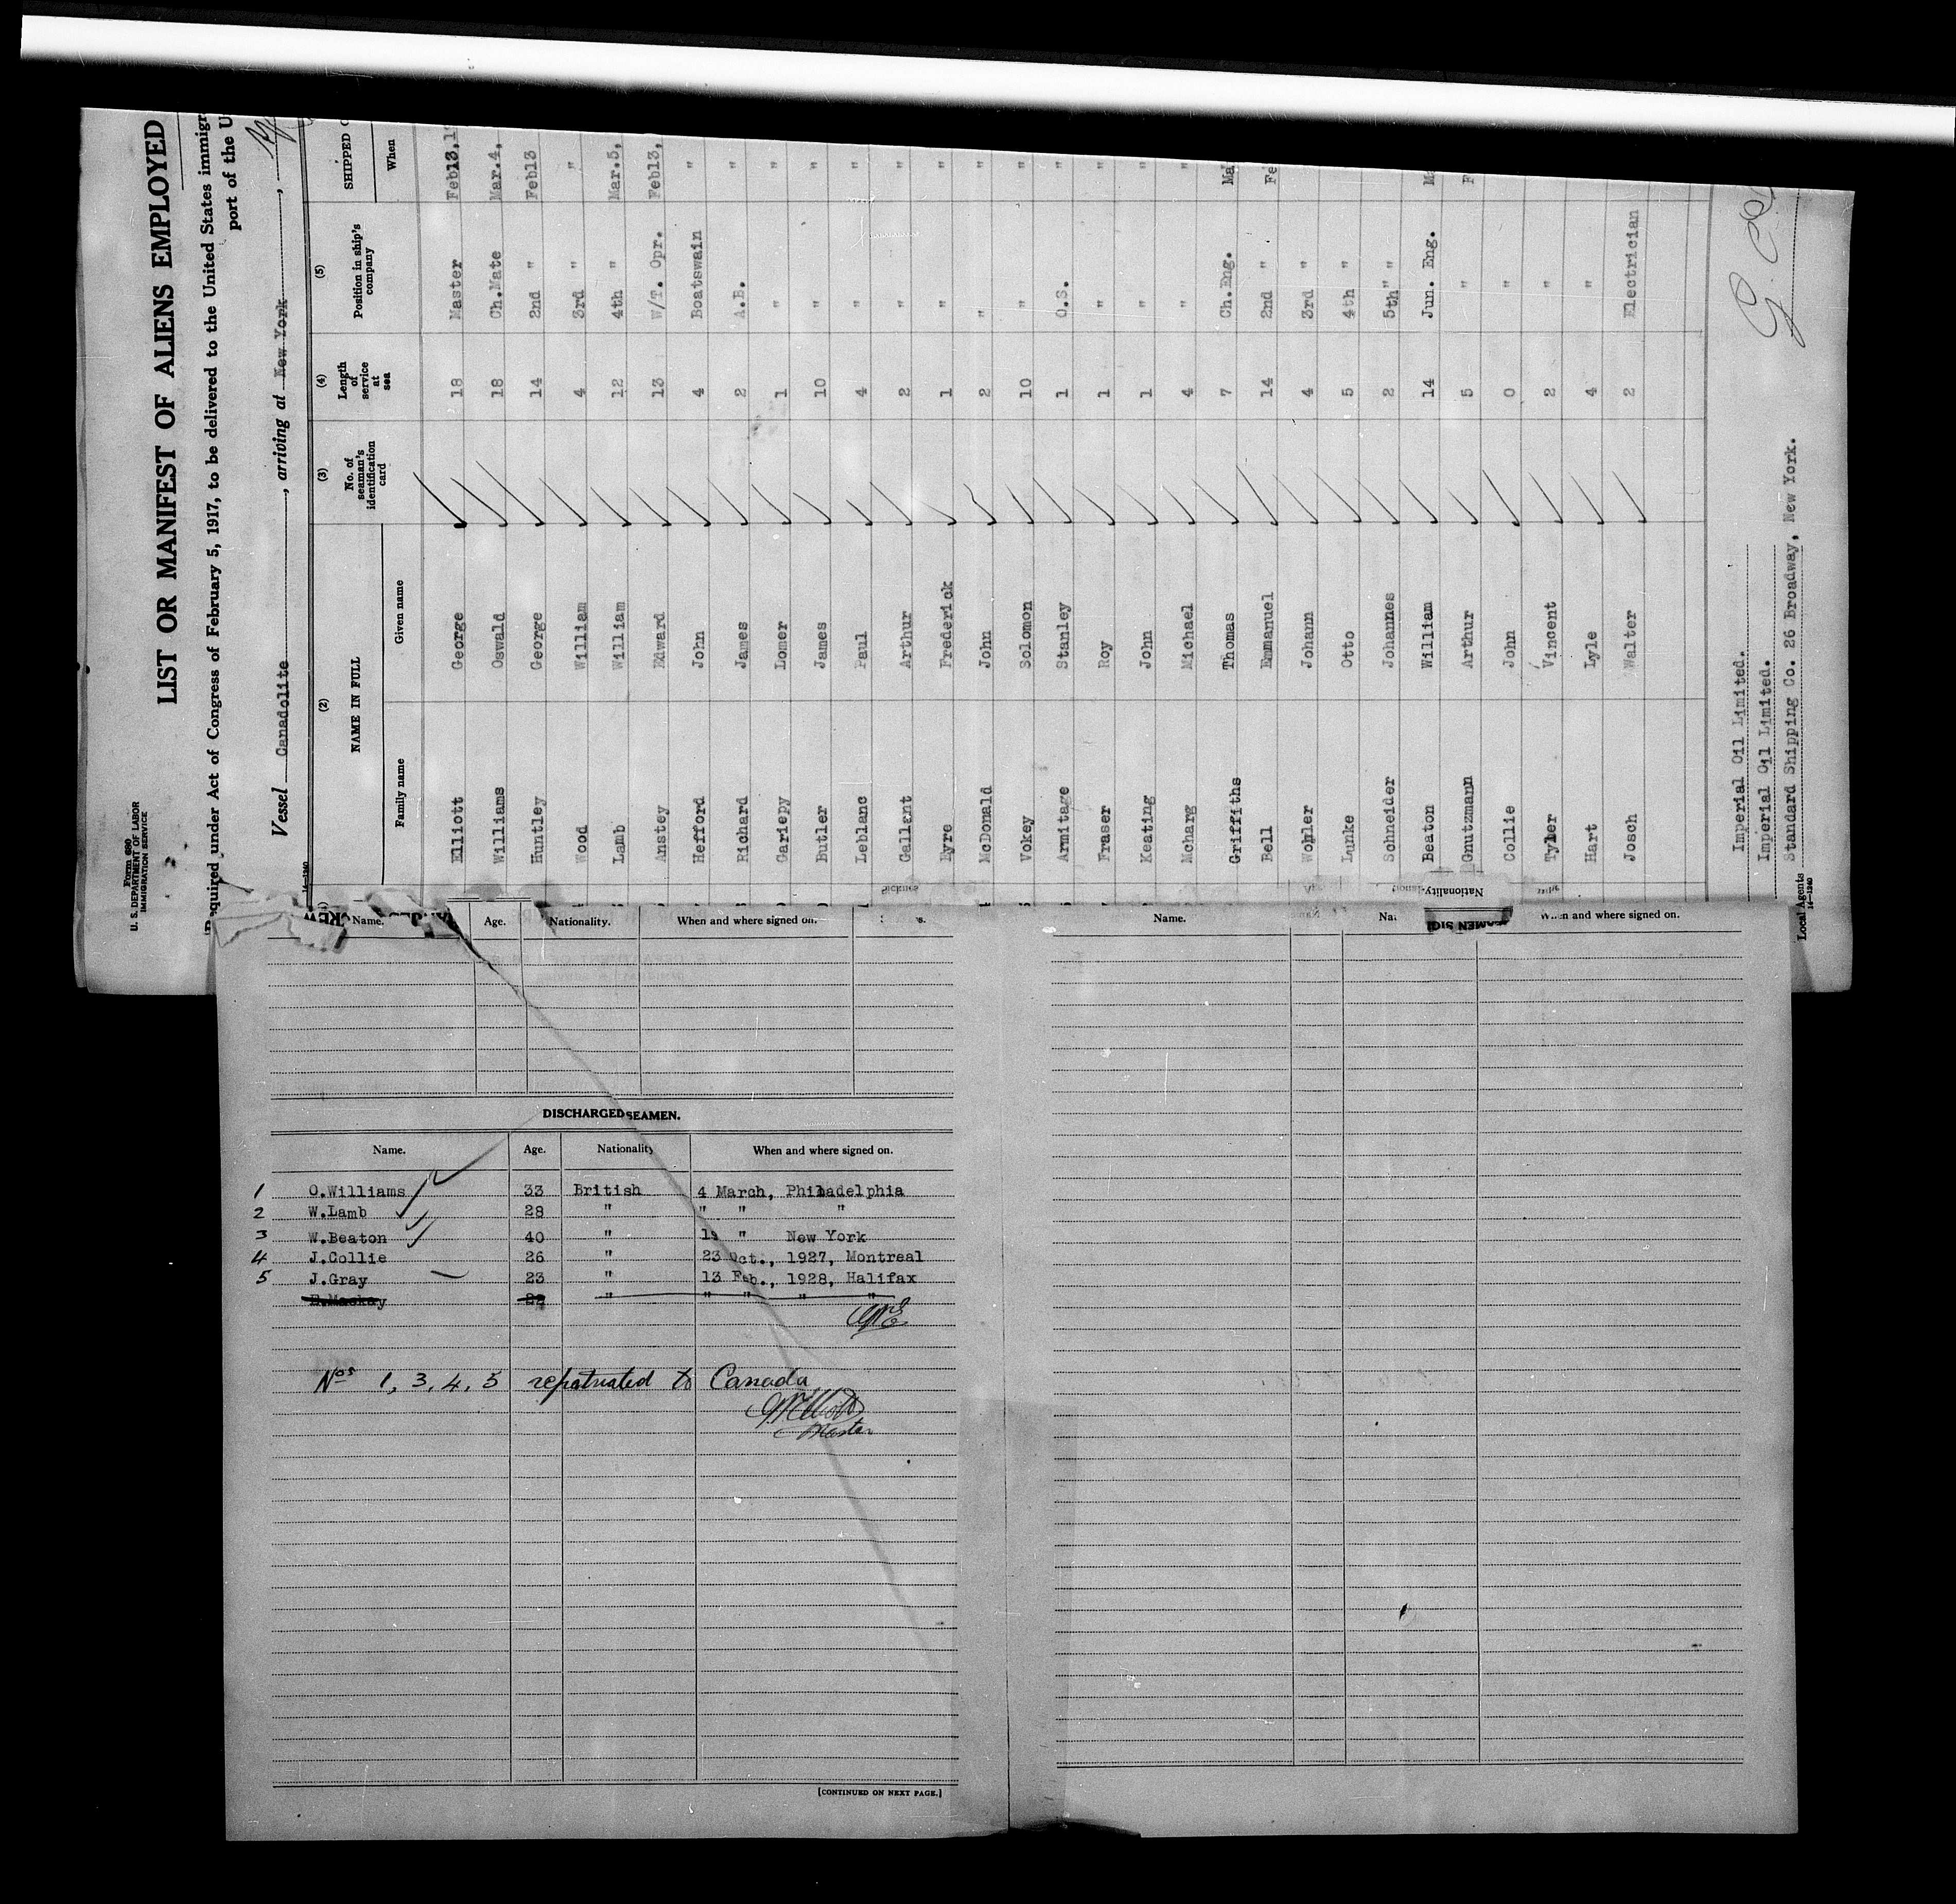 Form 680
U. S. DEPARTMENT OF LABOR
IMMIGRATION SERVICE
LIST OR MANIFEST OF ALIENS EMPLOYED
Required under Act of Congress of February 5, 1917, to be delivered to the United States immigr
port of the U
Vessel Canadolite, arriving at New York,
(2) (3) (4) (5)
NAME IN FULL No. of seaman's identification card Length of service at sea Position in ship's company SHIPPED
Family name Given name When
Elliott George 18 Master Feb13,
Williams Oswald 18 Ch.Mate Mar.4,
Huntley George 14 2nd " Feb13
Wood William 4 3rd " "
Lamb William 12 4th " Mar.5,
Anstey Edward 13 W/T. Opr. Feb13,
Hefford John 4 Boatswain "
Richard James 2 A.B. "
Gariepy Lomer 1 " "
Butler James 10 " "
Leblanc Paul 4 " "
Gallant Arthur 2 " "
Eyre Frederick 1 " "
McDonald John 2 " "
Vokey Solomon 10 " "
Armitage Stanley 1 O.S. "
Fraser Roy 1 " "
Keating John 1 " "
Mcharg Michael 4 " "
Griffiths Thomas 7 Ch.Eng. Ma
Bell Emmanuel 14 2nd " Fe
Wohler Johann 4 3rd "
Lunke Otto 5 4th "
Schneider Johannes 2 5th "
Beaton William 14 Jun. Eng. M
Gnutzmann Arthur 5 " F
Collie John 0 "
Tyler Vincent 2 "
Hart Lyle 4 "
Josch Walter 2 Electrician
Imperial Oil Limited.
Imperial Oil Limited.
Local Agents Standard Shipping Co. 26 Broadway, New York.
14—1240
Name. Age. Nationality. When and where signed on.
DISCHARGED SEAMEN.
Name. Age. Nationality When and where signed on.
1 O.Williams 33 British 4 March, Philadelphia
2 W.Lamb 28 " " " "
3 W.Beaton 40 " 19 " New York
4 J.Collie 26 " 23 Oct., 1927, Montreal
5 J.Gray 23 " 13 Feb., 1928, Halifax
Mackay " " " " "
Nos 1, 3, 4, 5 repatriated to Canada
Master
[CONTINUED ON NEXT PAGE.]
Name. When and where signed on.